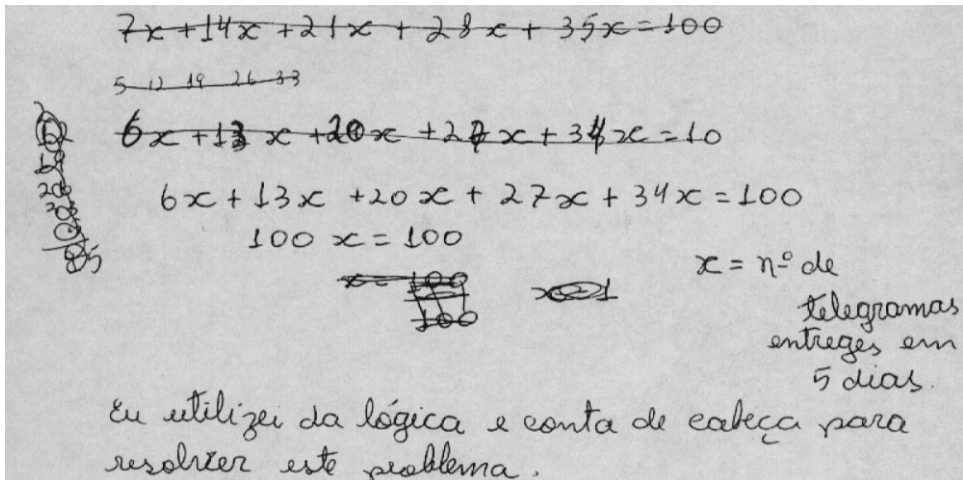 7x + 14x + 21x + 28x + 35x = 100
5 12 19 26 33
6x + 13x + 20x + 27x + 34x = 10
6x + 13x + 20x + 27x + 34x = 100
100 x = 100
x = nº de
telegramas
entreges em
5 dias.
Eu utilizei da lógica e conta de cabeça para
resolver este problema.